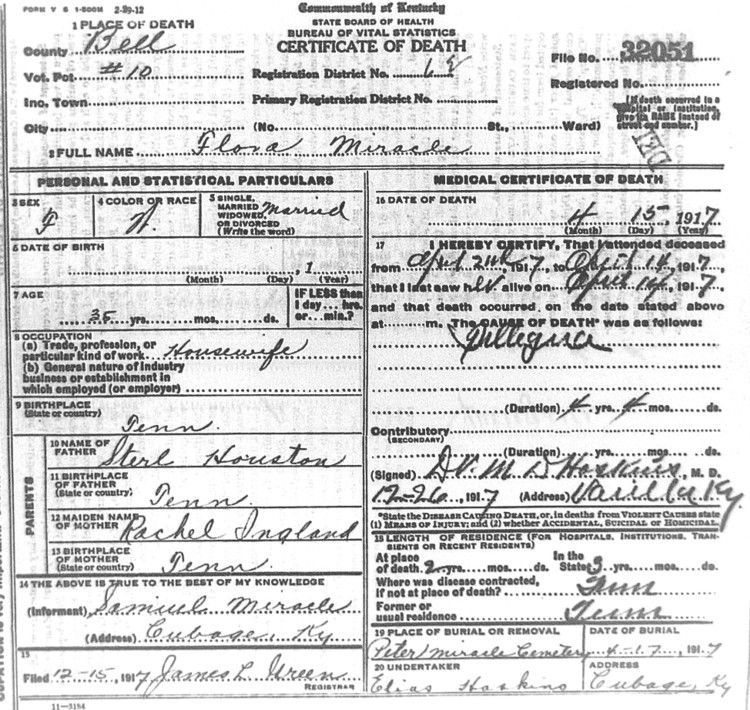 FORM V S 1-500M 2-29-12
Commonwealth of Kentucky
STATE BOARD OF HEALTH
BUREAU OF VITAL STATISTICS
CERTIFICATE OF DEATH
1 PLACE OF DEATH
County Bell
Vot. Pct #10
Inc. Town
City
Registration District No.
Primary Registration District No.
(No. St., Ward)
File No. 32051
Registered No.
[If death occurred in a
hospital or institution,
give its NAME instead of
street and number.]
2 FULL NAME Flora Miracle
PERSONAL AND STATISTICAL PARTICULARS
3 SEX
F
4 COLOR OR RACE
W.
5 SINGLE,
MARRIED
WIDOWED,
OR DIVORCED
(Write the word)
Married
6 DATE OF BIRTH
, 1
(Month) (Day) (Year)
7 AGE
35 yrs. mos. ds.
IF LESS than
1 day....hrs.
or....min.?
8 OCCUPATION
(a) Trade, profession, or
particular kind of work Housewife
(b) General nature of industry
business or establishment in
which employed (or employer)
9 BIRTHPLACE
(State or country)
Tenn.
PARENTS
10 NAME OF
FATHER Sterl Houston
11 BIRTHPLACE
OF FATHER
(State or country) Tenn
12 MAIDEN NAME
OF MOTHER Rachel Ingland
13 BIRTHPLACE
OF MOTHER
(State or country) Tenn
14 THE ABOVE IS TRUE TO THE BEST OF MY KNOWLEDGE
(Informant) Samuel Miracle
(Address) Cubage, Ky
15
Filed 12-15, 1917 James L Green
REGISTRAR
11-3184
MEDICAL CERTIFICATE OF DEATH
16 DATE OF DEATH
4 15 1917
(Month) (Day) (Year)
17 I HEREBY CERTIFY, That I attended deceased
from April 2nd, 1917, to April 14, 1917,
that I last saw her alive on April 14, 1917
and that death occurred on the date stated above
at m. The CAUSE OF DEATH* was as follows:
(Duration) 4 yrs. 4 mos. ds.
Contributory
(SECONDARY)
(Duration) yrs. mos. ds.
(Signed) Hoskins, M. D.
12-26, 1917 (Address) Ky.
*State the DISEASE CAUSING DEATH, or, in deaths from VIOLENT CAUSES state
(1) MEANS OF INJURY; and (2) whether ACCIDENTAL, SUICIDAL OR HOMICIDAL.
18 LENGTH OF RESIDENCE (FOR HOSPITALS, INSTITUTIONS, TRAN-
SIENTS OR RECENT RESIDENTS)
At place
of death 2 yrs. mos. ds.
In the
State 3 yrs. mos. ds.
Where was disease contracted,
if not at place of death? Tenn
Former or
usual residence Tenn
19 PLACE OF BURIAL OR REMOVAL
Peter Miracle Cemetery
DATE OF BURIAL
4-17, 1917
20 UNDERTAKER
Elias Hoskins
ADDRESS
Cubage, Ky